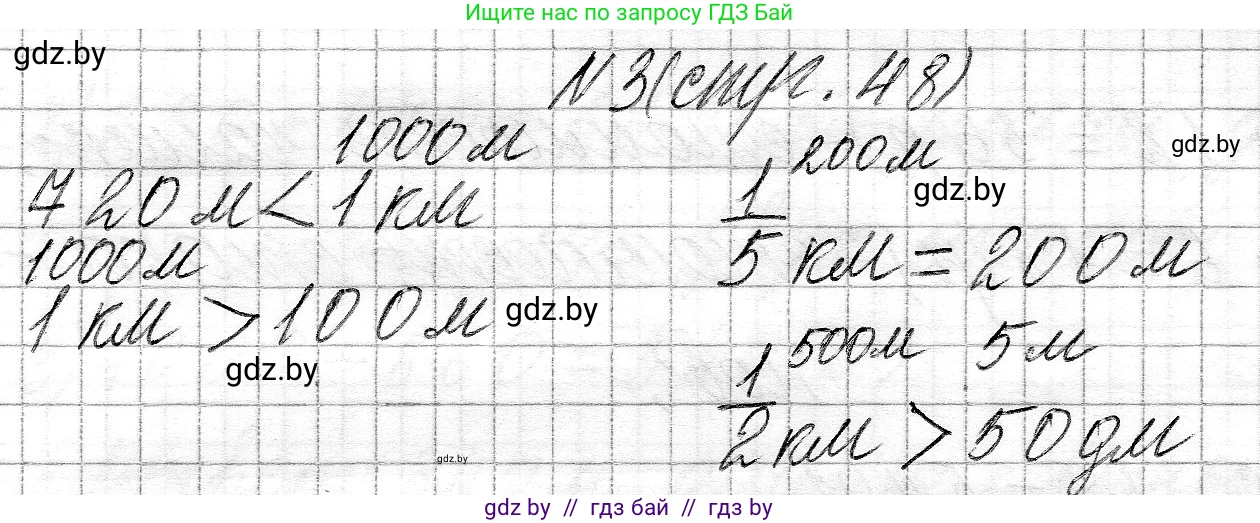 Ищите нас по запросу ГДЗ Бай
gdz.by
N 3 (стр. 48)
1000м
720 м < 1 км
1000м
1 км > 100 м
gdz.by
gdz.by
gdz.by
200м
gdz.by
1/5 км = 200 м
500м 5 м
1/2 км > 50 дм
gdz.by
gdz by // гдз бай // гдз by